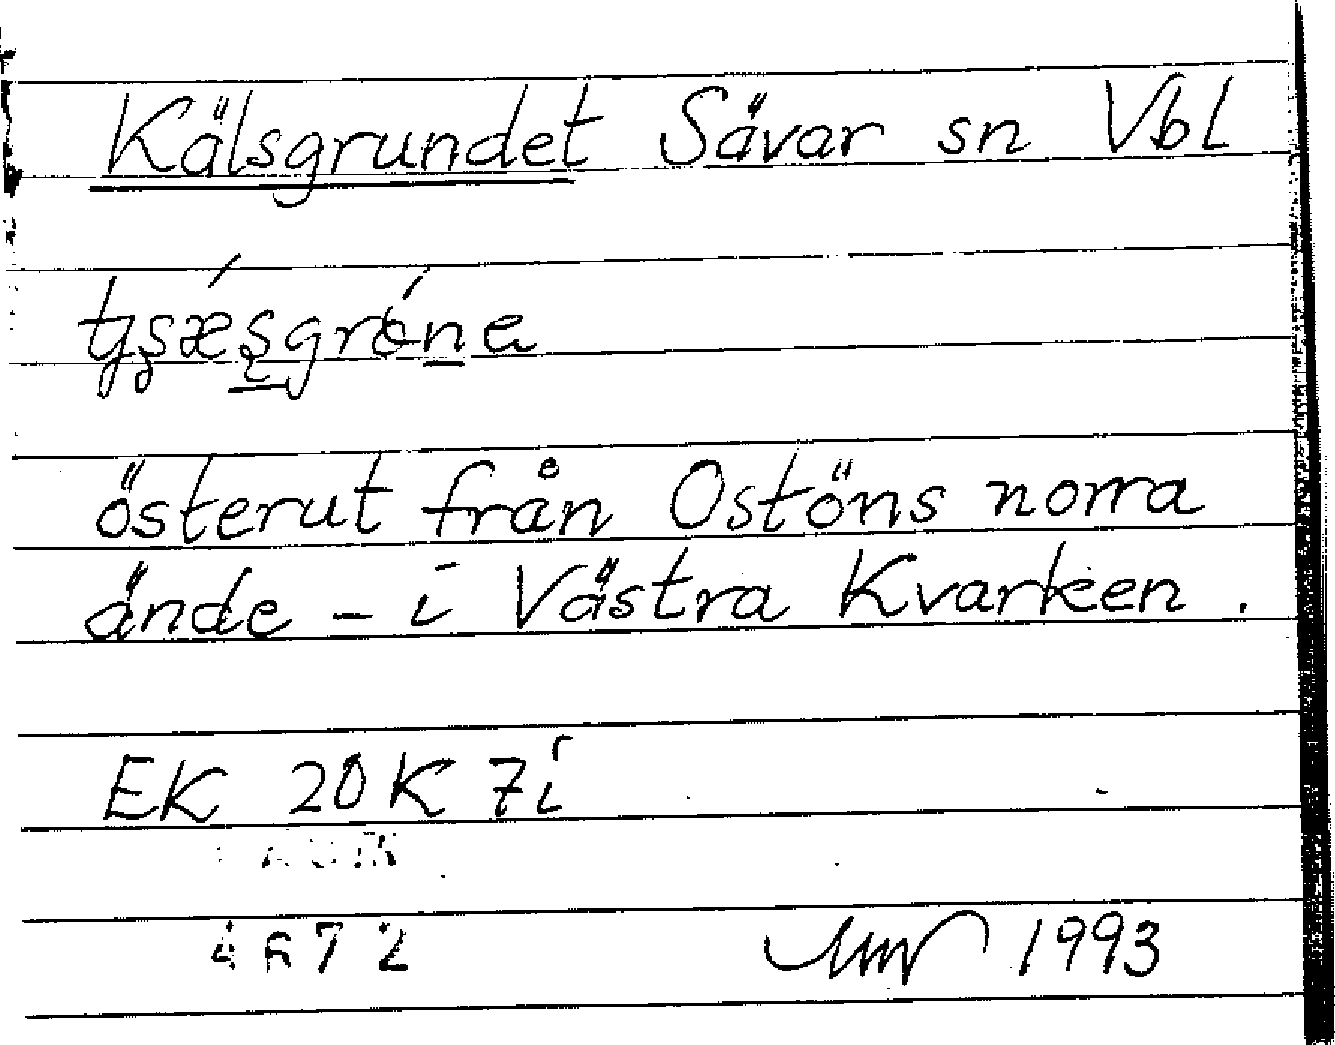 Kälsgrundet Sävar sn Vbl
österut från Ostöns norra
ände - i Västra Kvarken.
EK 20K 7i
4672
1993